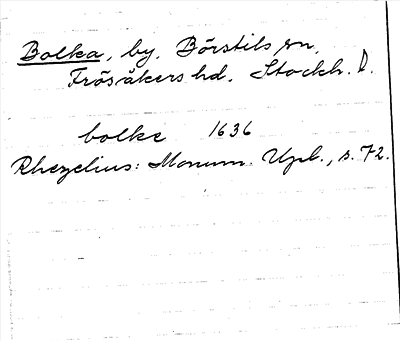 Bolka, by, Börstils sn,
Frösåkers hd. Stockh. D.
bolke 1636
Rhezelius: Monum. Upl., s. 72.